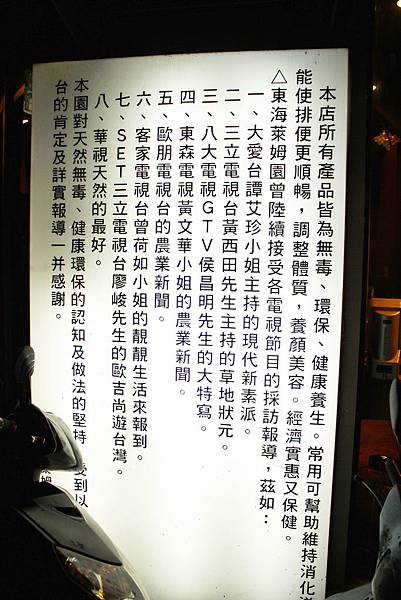 本店所有產品皆為無毒、環保、健康養生。常用可幫助維持消化
能使排便更順暢，調整體質，養顏美容。經濟實惠又保健。
△東海萊姆園曾陸續接受各電視節目的採訪報導，茲如：
一、大愛台譚艾珍小姐主持的現代新素派。
二、三立電視台黃西田先生主持的草地狀元。
三、八大電視GTV侯昌明先生的大特寫。
四、東森電視黃文華小姐的農業新聞。
五、歐朋電視台的農業新聞。
六、客家電視台曾荷如小姐的靚靚生活來報到。
七、SET三立電視台廖峻先生的歐吉尚遊台灣。
八、華視天然的最好。
本園對天然無毒、健康環保的認知及做法的堅持 受到以
台的肯定及詳實報導一并感謝。
姆